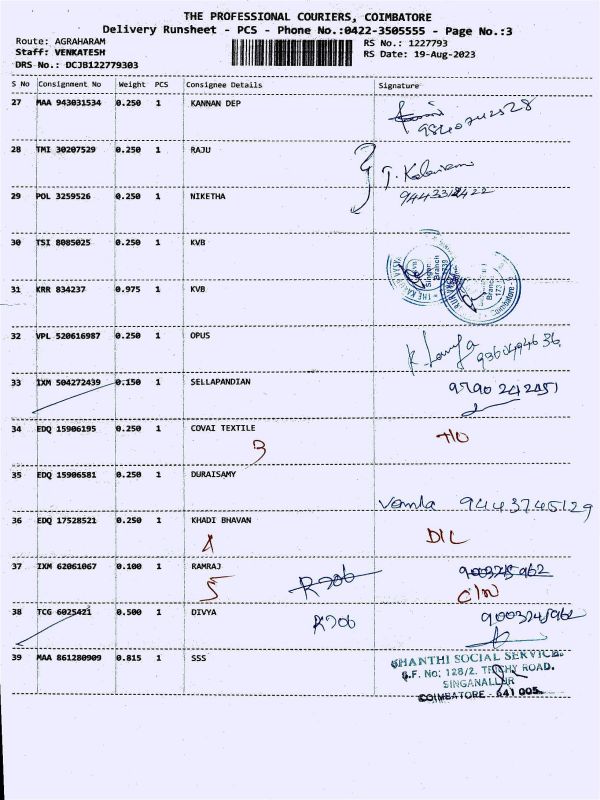 THE PROFESSIONAL COURIERS, COIMBATORE
Delivery Runsheet - PCS - Phone No.:0422-3505555 - Page No.:3
Route: AGRAHARAM
RS No.: 1227793
Staff: VENKATESH
RS Date: 19-Aug-2023
DRS No.: DCJB122779303
S No Consignment No Weight PCS Consignee Details Signature
27 MAA 943031534 0.250 1 KANNAN DEP
28 TMI 30207529 0.250 1 RAJU
29 POL 3259526 0.250 1 NIKETHA
30 TSI 8085025 0.250 1 KVB
31 KRR 834237 0.975 1 KVB
32 VPL 520616987 0.250 1 OPUS
33 IXM 504272439 0.150 1 SELLAPANDIAN
34 EDQ 15906195 0.250 1 COVAI TEXTILE
3
35 EDQ 15906581 0.250 1 DURAISAMY
Vamla 9443745129
36 EDQ 17528521 0.250 1 KHADI BHAVAN
4 D/L
37 IXM 62061067 0.100 1 RAMRAJ
5 R706
38 TCG 6025421 0.500 1 DIVYA
R706 9003245962
39 MAA 861280909 0.815 1 SSS
SHANTHI SOCIAL SERVICE.
S.F. No: 128/2. TRICHY ROAD.
SINGANALLUR
COIMBATORE - 641 005.